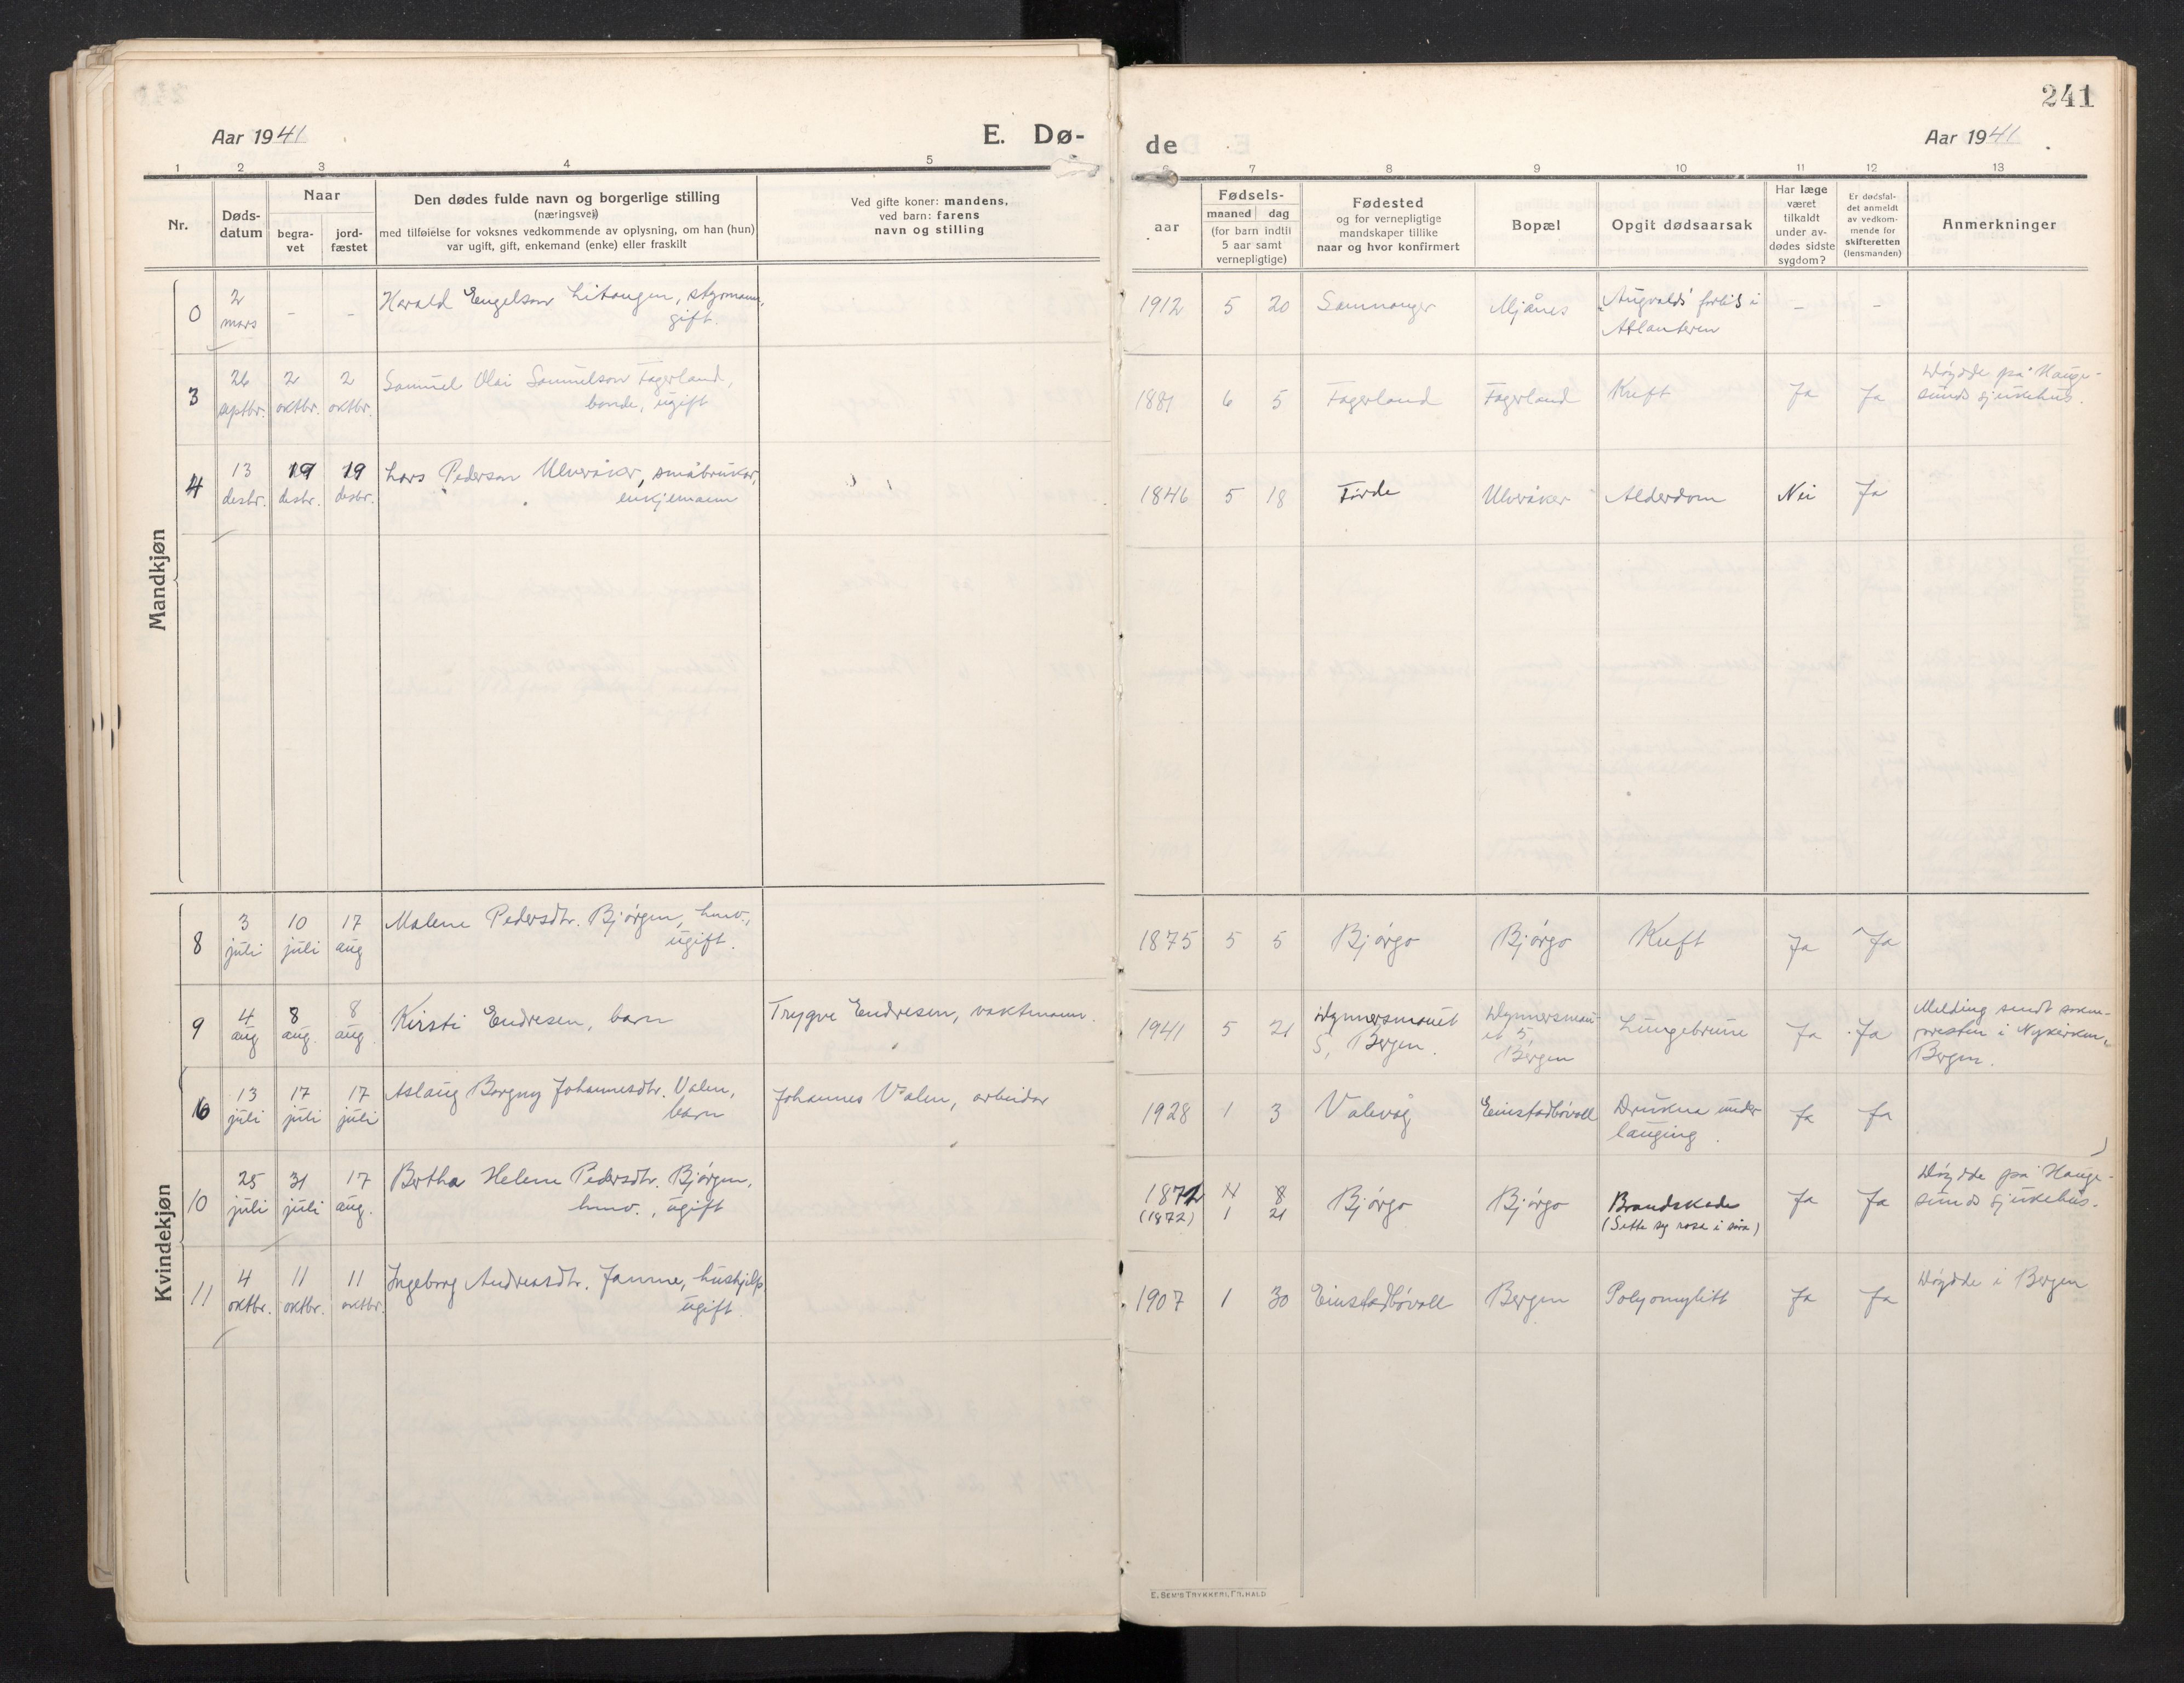 241
Aar 1941
E. Dø-
de
Aar 1941
1 2 3 4 5 7 8 9 10 11 12 13
Nr.
Døds-
datum
Naar
begra-
vet
jord-
fæstet
Den dødes fulde navn og borgerlige stilling
(næringsvei)
med tilføielse for voksnes vedkommende av oplysning, om han (hun)
var ugift, gift, enkemand (enke) eller fraskilt
Ved gifte koner: mandens,
ved barn: farens
navn og stilling
Fødsels-
aar
maaned dag
(for barn indtil
5 aar samt
vernepligtige)
Fødested
og for vernepligtige
mandskaper tillike
naar og hvor konfirmert
Bopæl
Opgit dødsaarsak
Har læge
været
tilkaldt
under av-
dødes sidste
sygdom?
Er dødsfal-
det anmeldt
av vedkom-
mende for
skifteretten
(lensmanden)
Anmerkninger
Mandkjøn
0 2 mars - - Harald Engelson Litangen, styrmann,
gift.
1912 5 20 Samnanger Mjånes "Augvalds" forlis i
Atlanteren - -
3 26 septbr. 2 oktbr. 2 oktbr. Samuel Olai Samuelson Fagerland,
bonde, ugift
1881 6 5 Fagerland Fagerland Kreft Ja Ja Døydde på Hauge-
sunds sjukehus.
4 13 desbr. 19 desbr. 19 desbr. Lars Pederson Ulveråker, småbrukar,
enkjemann
1846 5 18 Førde Ulveråker Alderdom Nei Ja
Kvindekjøn
8 3 juli 10 juli 17 aug Malene Pedersdtr. Bjørgen, husv.,
ugift.
1875 5 5 Bjørgo Bjørgo Kreft Ja Ja
9 4 aug 8 aug. 8 aug. Kirsti Endresen, barn
Trygve Endresen, vaktmann.
1941 5 21
5, Bergen.
5,
Bergen
Lungebrune Ja Ja Melding sendt sokne-
presten i Nykirken,
Bergen.
6 13 juli 17 juli 17 juli Aslaug Borgny Johannesdtr. Valen,
barn
Johannes Valen, arbeidar
1928 1 3 Valevåg Einstadbøvoll Drukna under
lauging. Ja Ja
10 25 juli 31 juli 17 aug. Bertha Helene Pedersdtr. Bjørgen,
husv., ugift
1872 4 8
(1872) 1 21
Bjørgo Bjørgo Brandskade
(Sette og rose i såra)
Ja Ja Døydde på Hauge-
sunds sjukehus.
11 4 oktbr. 11 oktbr. 11 oktbr. Ingeborg Andreasdtr. Famme, hushjelp,
ugift.
1907 1 30 Einstadbøvoll Bergen Polyomylitt Ja Ja Døydde i Bergen
E. SEM'S TRYKKERI, FR.HALD